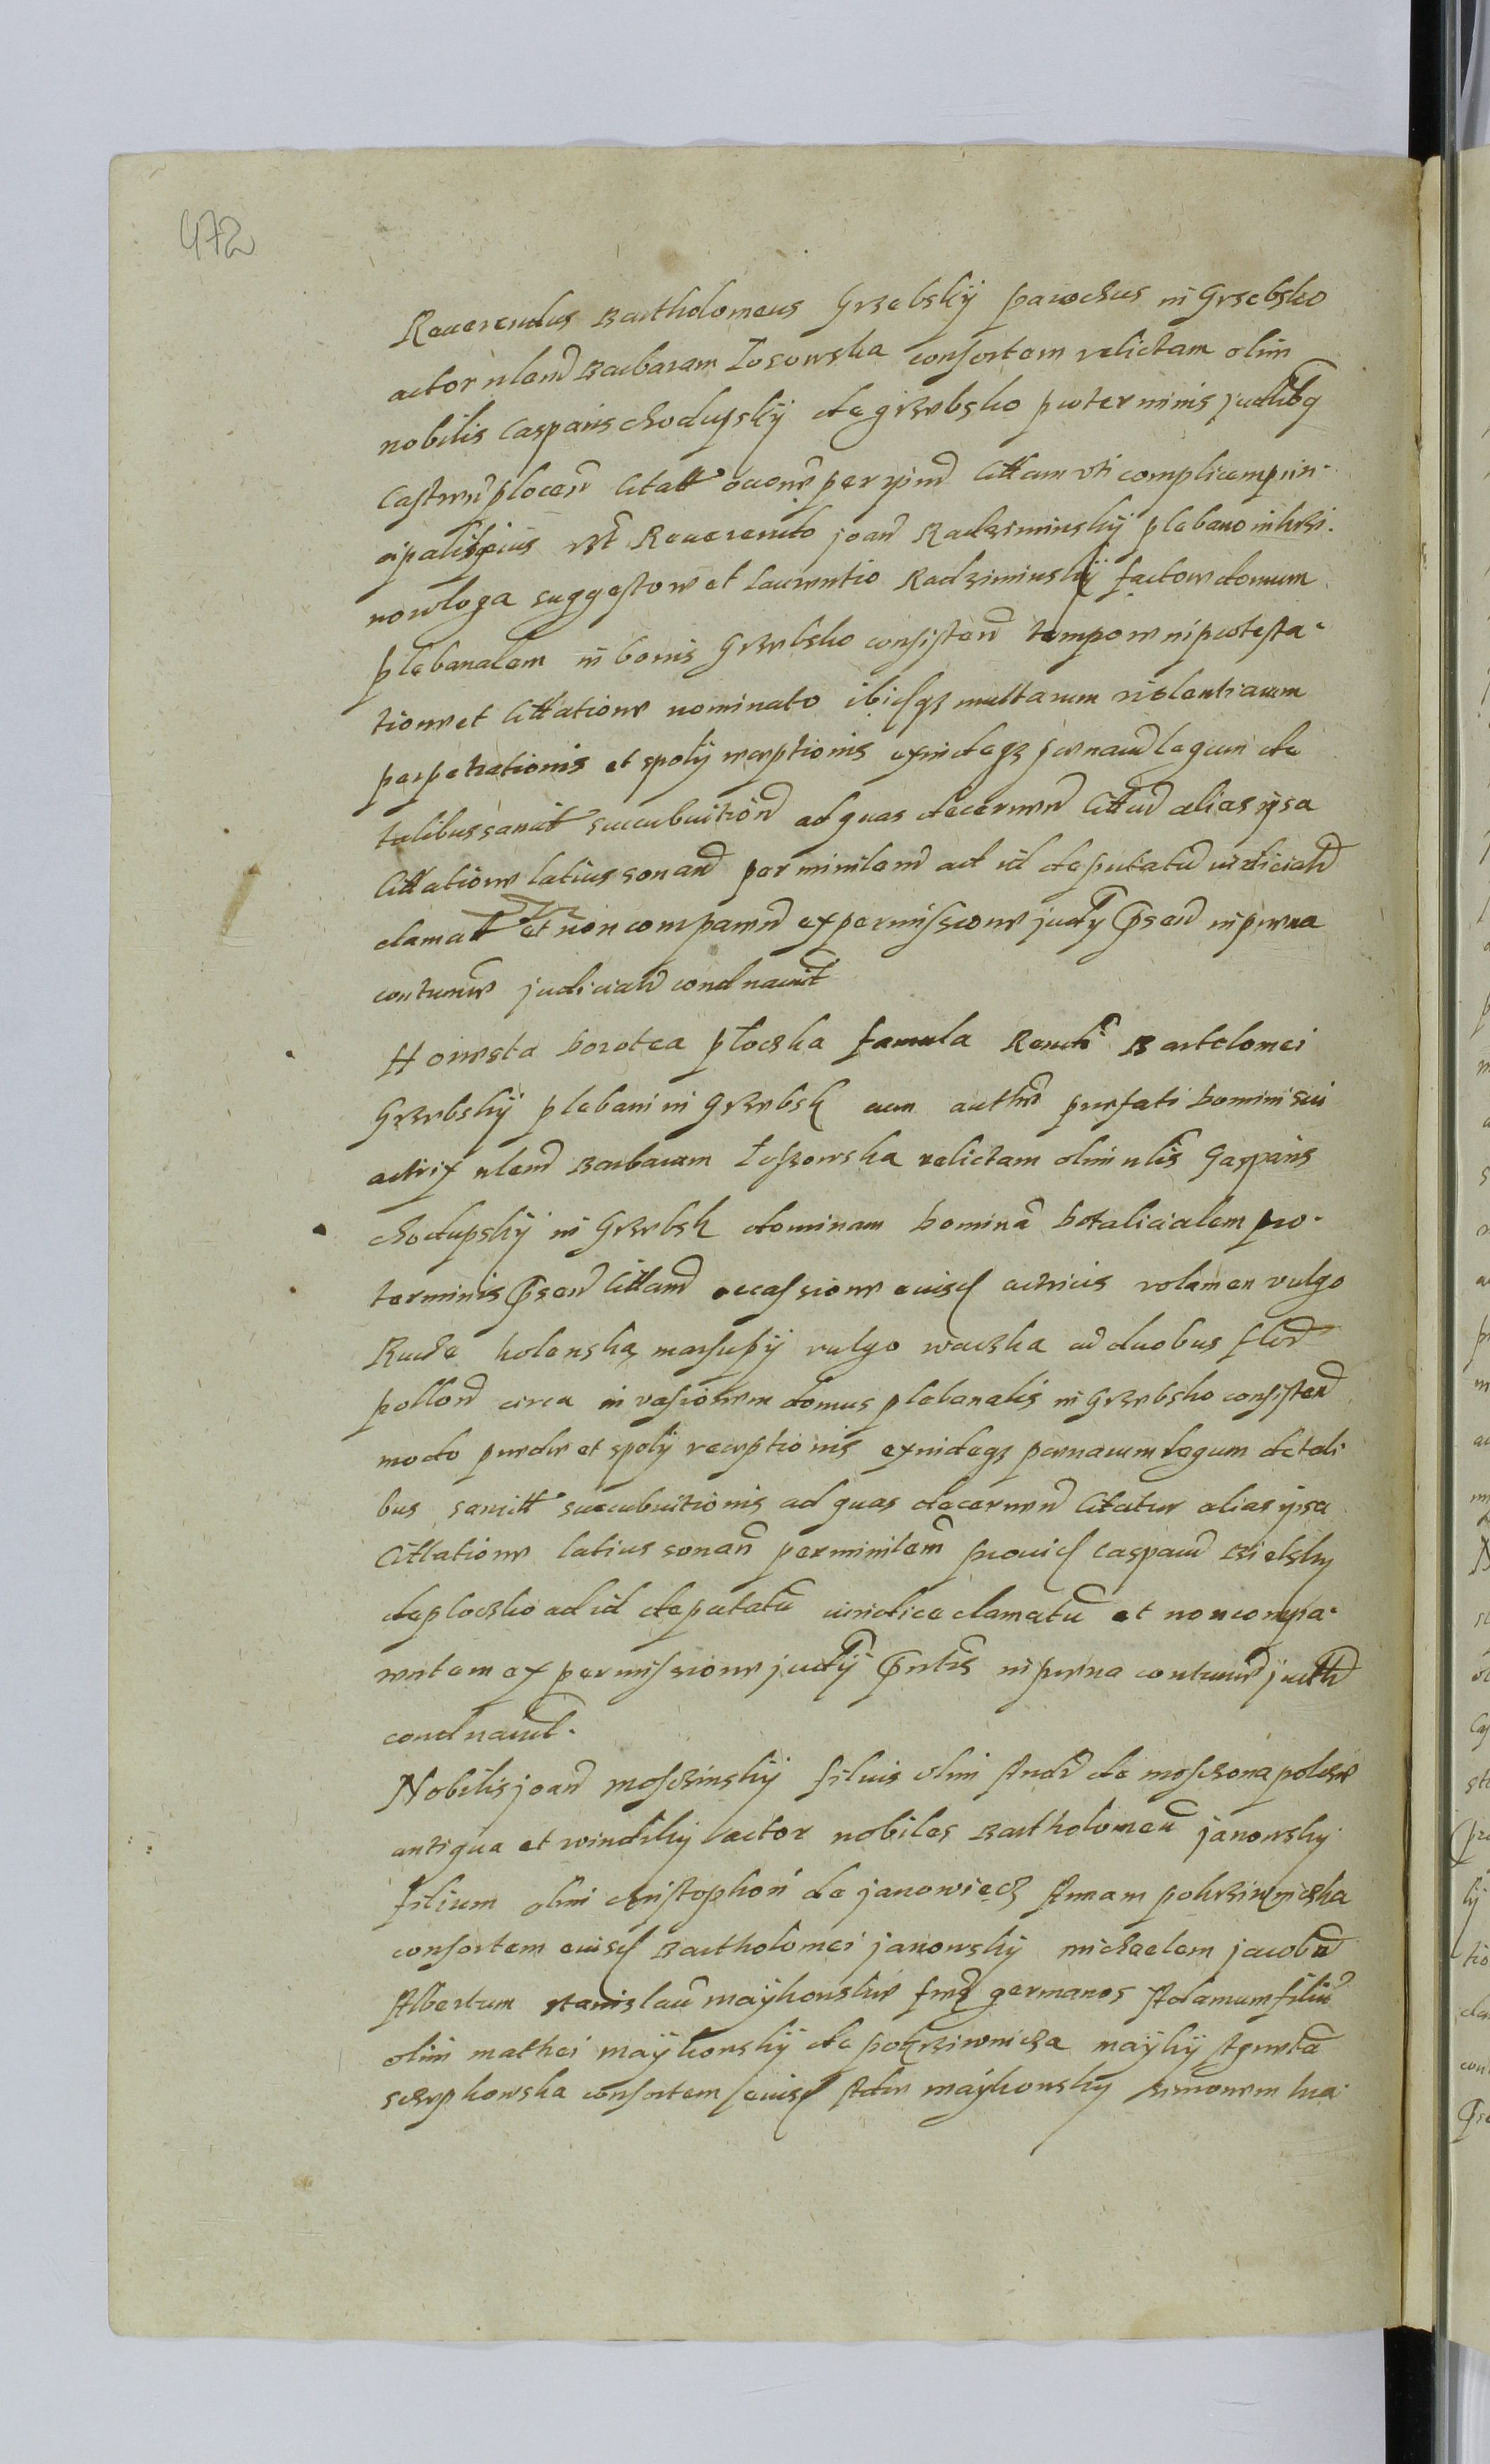 472
Reuerendus Bartholomeus Grzebskÿ parochus in Grzebsko
actor nlem Barbaram Zosowska consortem relictam olim
nobilis Casparis chodupskÿ de grzebsko pro terminis judlibq
Castren plocen Citatt oucone per ipm Cittam vti complicem prin-
cipalis eius Reuerendo joan Radziminskÿ plebano in krzi-
nowloga suggestore et Laurentio Radziminskÿ factore domum
plebanalem in bonis Grzebsko consisten tempore in protesta-
tione et Cittatione nominato ibidqz multarum violentiarum
perpetrationis et spolÿ receptionis exindeqz penarum legum de
talibus sancit succubuition ad quas decernen Cittur alias ipsa
Cittatione latius sonan per ministem ad id deputatu iuridicial
clamatt et non comparen ex permissione judÿ Psen in pena
contume judicial condnauit
Honesta Dorotea plocska famula Rendi Bartolomei
Grzebskÿ plebani in Grzebsk cum authe prefati Domini sui
actrix nlem Barbaram Loszowska relictam olim nlis Gasparis
chodupskÿ in Grzebsk dominam Domina Dotalicialem pro-
terminis Psen Cittam occassione euisd actricis volamen vulgo
Rucha kolenska marsupÿ vulgo waczka cu duobus flor
pollon circa invasionem domus plebanalis in Grzebsko consisten
modo predo et spolÿ receptionis exindeqz penarum legum de tali-
bus sancitt succubuitionis ad quas decernen Citatur alias ipsa
Cittatione latius sonan per ministem prouid Caspaum Bielsky
de plocsko ad id deputatu iuridice clamatu et non compa-
rentem ex permissione judÿ Pntis in pena contume judl
condnauit.
Nobilis joan mosczinskÿ filius olim Andr de mosczona polche
antiqua et windiky actor nobiles Bartholomeu janowsky
filium olim christophori de janowiecz Annam pokrziwniczka
consortem euisd Bartholomei janowskÿ michaelem jacobu
Albertum stanislau maÿkowskie frez germanos Adamum filiu
olim mathei maÿkowskÿ de pokrziwnicza maÿkÿ Agneta
sczepkowska consortem euisd Ade maÿkowsky simonem kra-